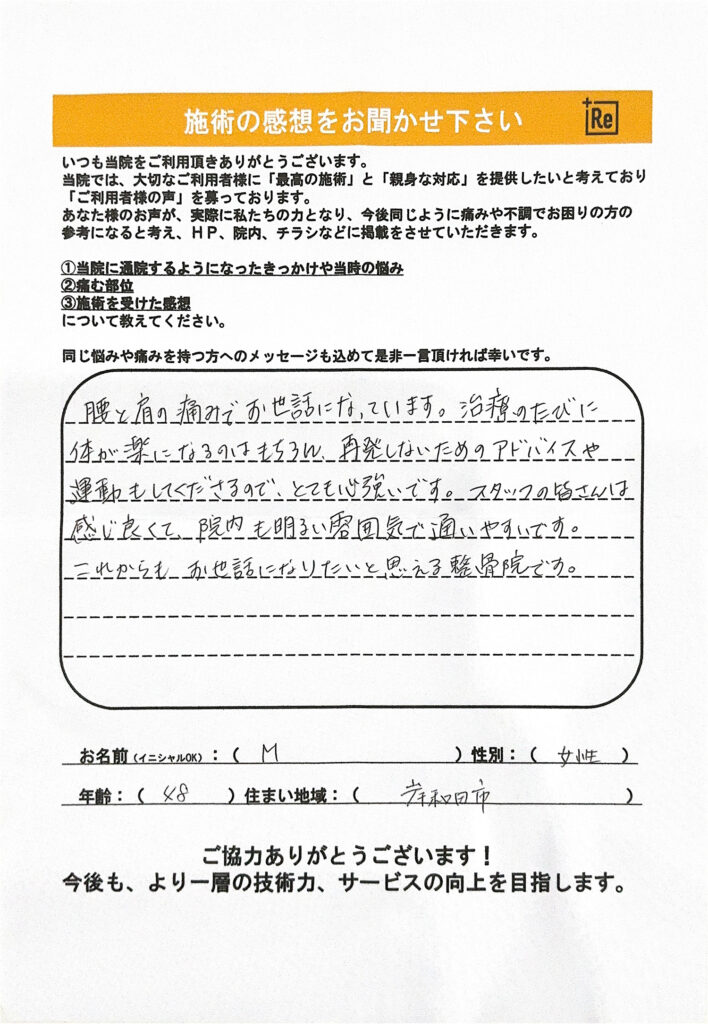 施術の感想をお聞かせ下さい
+Re
いつも当院をご利用頂きありがとうございます。
当院では、大切なご利用者様に「最高の施術」と「親身な対応」を提供したいと考えており
「ご利用者様の声」を募っております。
あなた様のお声が、実際に私たちの力となり、今後同じように痛みや不調でお困りの方の
参考になると考え、ＨＰ、院内、チラシなどに掲載をさせていただきます。
①当院に通院するようになったきっかけや当時の悩み
②痛む部位
③施術を受けた感想
について教えてください。
同じ悩みや痛みを持つ方へのメッセージも込めて是非一言頂ければ幸いです。
腰と肩の痛みでお世話になっています。治療のたびに
体が楽になるのはもちろん、再発しないためのアドバイスや
運動もしてくださるので、とても心強いです。スタッフの皆さんは
感じ良くて、院内も明るい雰囲気で通いやすいです。
これからもお世話になりたいと思える整骨院です。
お名前（イニシャルOK）：（ M ）性別：（ 女性 ）
年齢：（ 48 ）住まい地域：（ 岸和田市 ）
ご協力ありがとうございます！
今後も、より一層の技術力、サービスの向上を目指します。